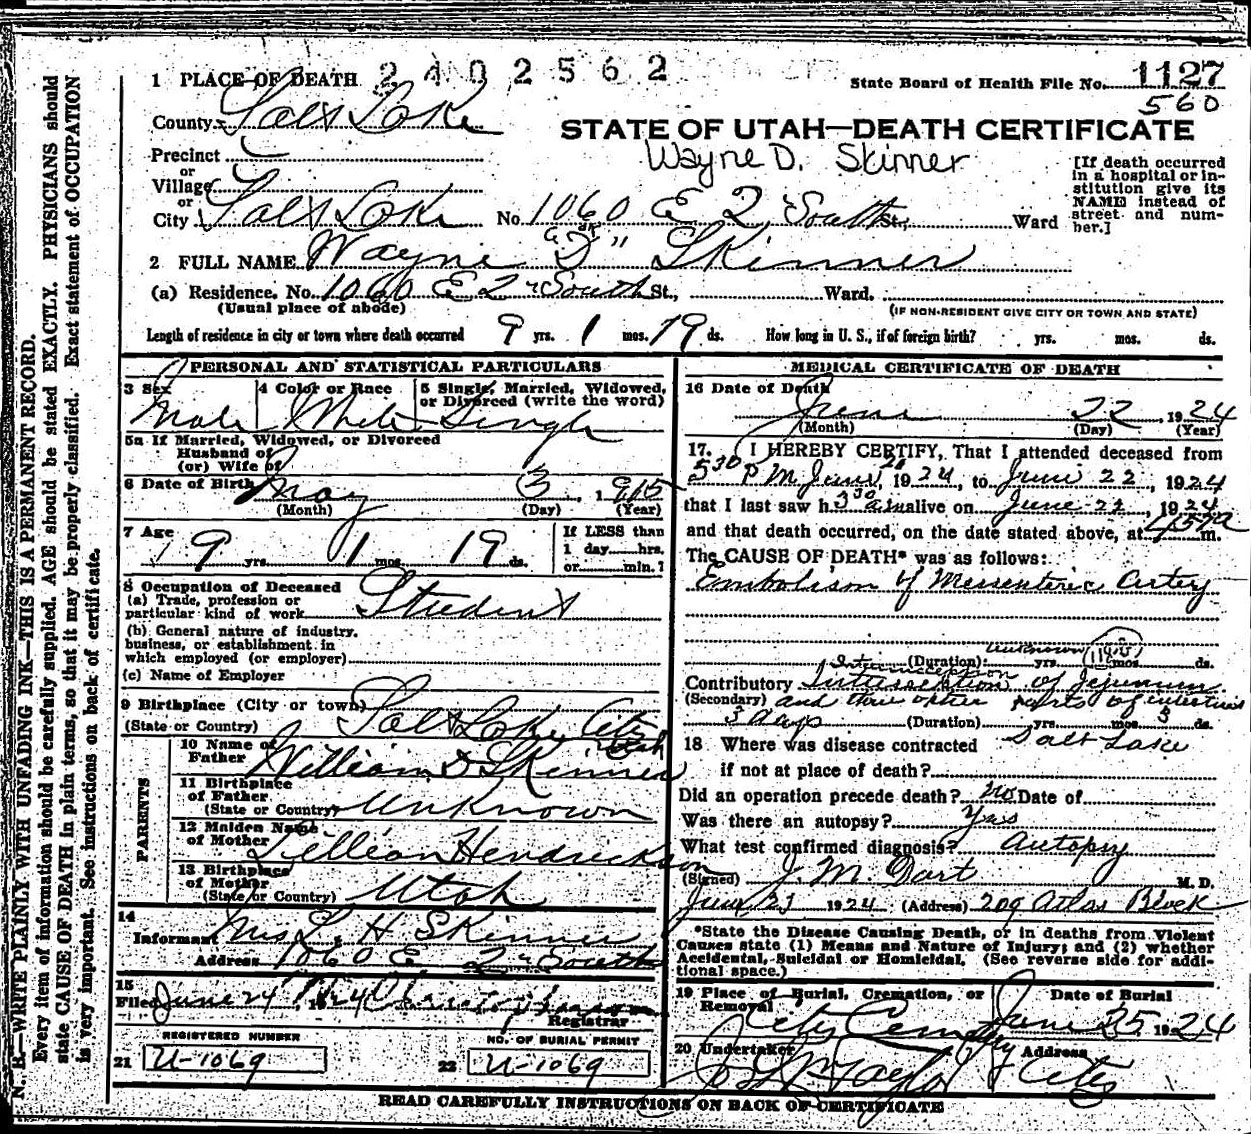 1 PLACE OF DEATH 2402562
State Board of Health File No. 1127
560
County Salt Lake
STATE OF UTAH—DEATH CERTIFICATE
Wayne D. Skinner
Precinct
or
Village
or
City Salt Lake No. 1060 E 2nd South St., Ward
[If death occurred
in a hospital or in-
stitution give its
NAME instead of
street and num-
ber.]
2 FULL NAME Wayne "D" Skinner
(a) Residence. No. 1060 E 2nd South St., Ward.
(Usual place of abode) (IF NON-RESIDENT GIVE CITY OR TOWN AND STATE)
Length of residence in city or town where death occurred 9 yrs. 1 mos. 19 ds. How long in U. S., if of foreign birth? yrs. mos. ds.
PERSONAL AND STATISTICAL PARTICULARS
3 Sex 4 Color or Race 5 Single, Married, Widowed,
or Divorced (write the word)
Male White Single
5a If Married, Widowed, or Divorced
Husband of
(or) Wife of
6 Date of Birth May 3, 1915
(Month) (Day) (Year)
7 Age 9 yrs. 1 mos. 19 ds.
If LESS than
1 day......hrs.
or......min.?
8 Occupation of Deceased
(a) Trade, profession or
particular kind of work Student
(b) General nature of industry,
business, or establishment in
which employed (or employer)
(c) Name of Employer
9 Birthplace (City or town) Salt Lake City
(State or Country) Utah
PARENTS
10 Name of
Father William D Skinner
11 Birthplace
of Father
(State or Country) Unknown
12 Maiden Name
of Mother Lillian Hendrickson
13 Birthplace
of Mother
(State or Country) Utah
14
Informant Mrs L. H Skinner
Address 1060 E. 2nd South
15
Filed June 24, 1924
Registrar
REGISTERED NUMBER NO. OF BURIAL PERMIT
21 U-1069 22 U-1069
MEDICAL CERTIFICATE OF DEATH
16 Date of Death
June 22, 1924
(Month) (Day) (Year)
17. I HEREBY CERTIFY, That I attended deceased from
530 P M June, 1924, to June 22, 1924
that I last saw h 330 alive on June 22, 1924
and that death occurred, on the date stated above, at m.
The CAUSE OF DEATH* was as follows:
Embolism of Mesenteric Artery
unknown
(Duration) yrs. mos. ds.
Intussusception
Contributory of Jejunum
(Secondary) and three other parts of intestines
3 days (Duration) yrs. mos. 3 ds.
18 Where was disease contracted Salt Lake
if not at place of death?
Did an operation precede death? No Date of
Was there an autopsy? Yes
What test confirmed diagnosis? Autopsy
(Signed) J. M. Dart M. D.
June 23 1924 (Address) 209 Atlas Block
*State the Disease Causing Death, or in deaths from Violent
Causes state (1) Means and Nature of Injury; and (2) whether
Accidental, Suicidal or Homicidal. (See reverse side for addi-
tional space.)
19 Place of Burial, Cremation, or Date of Burial
Removal
City Cemetery June 25 1924
20 Undertaker Address
Taylor City
READ CAREFULLY INSTRUCTIONS ON BACK OF CERTIFICATE
N. B.—WRITE PLAINLY WITH UNFADING INK—THIS IS A PERMANENT RECORD.
Every item of information should be carefully supplied. AGE should be stated EXACTLY. PHYSICIANS should
state CAUSE OF DEATH in plain terms, so that it may be properly classified. Exact statement of OCCUPATION
is very important. See instructions on back of certificate.